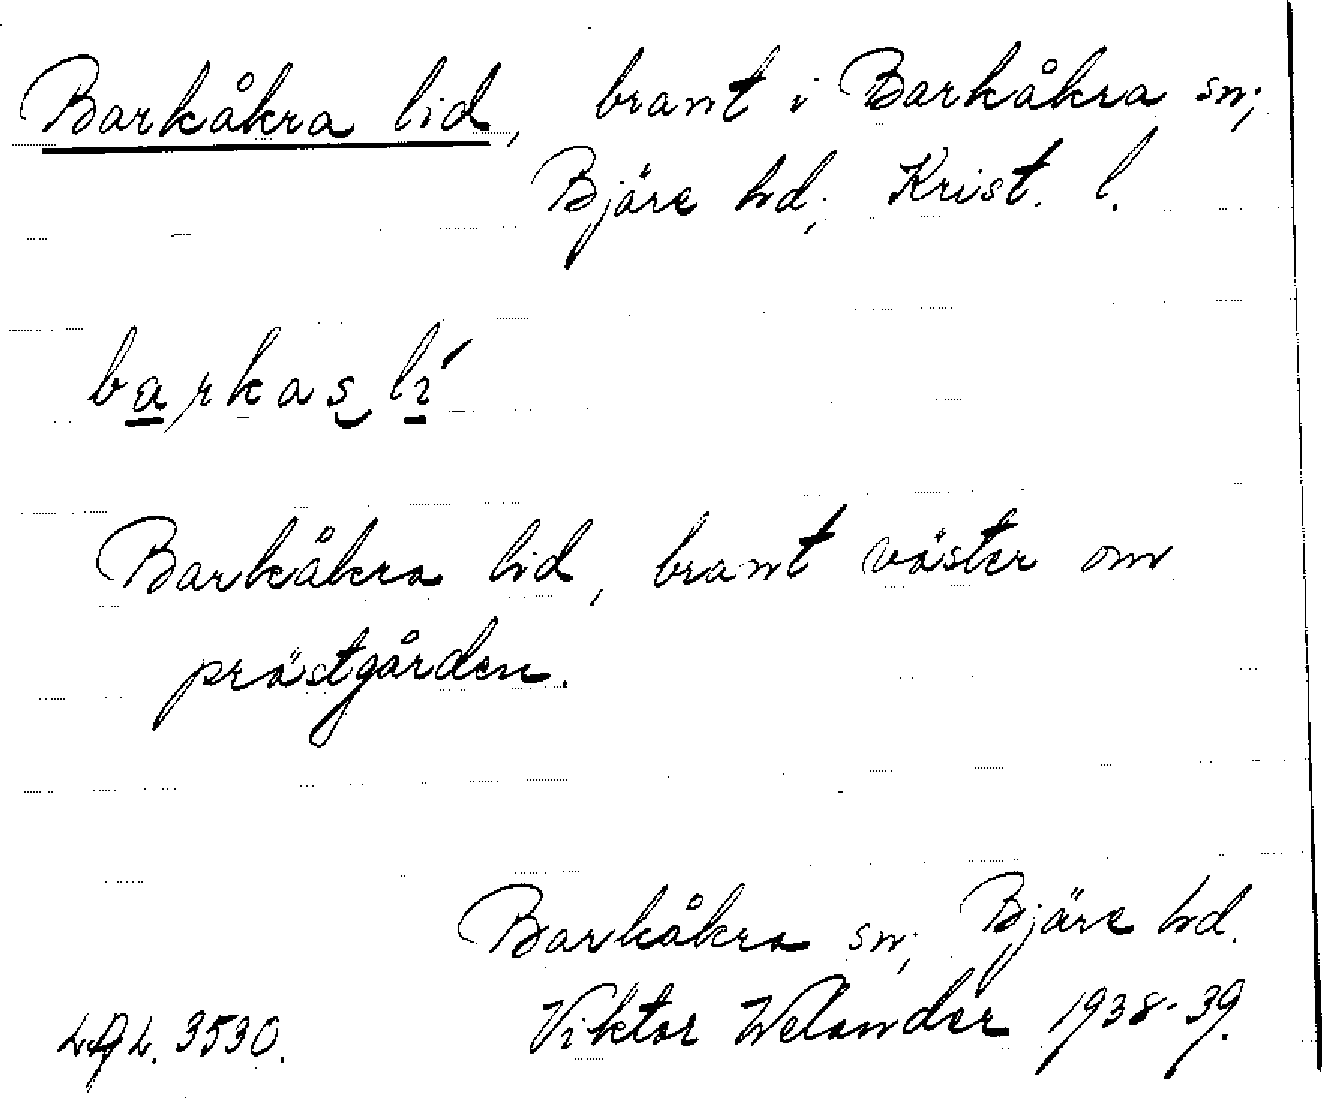 Barkåkra lid, brant i Barkåkra sn;
Bjäre hd; Krist. l.
barkas li´
Barkåkra lid, brant väster om
prästgården.
Barkåkra sn; Bjäre hd.
3530. Viktor Welander 1938-39.